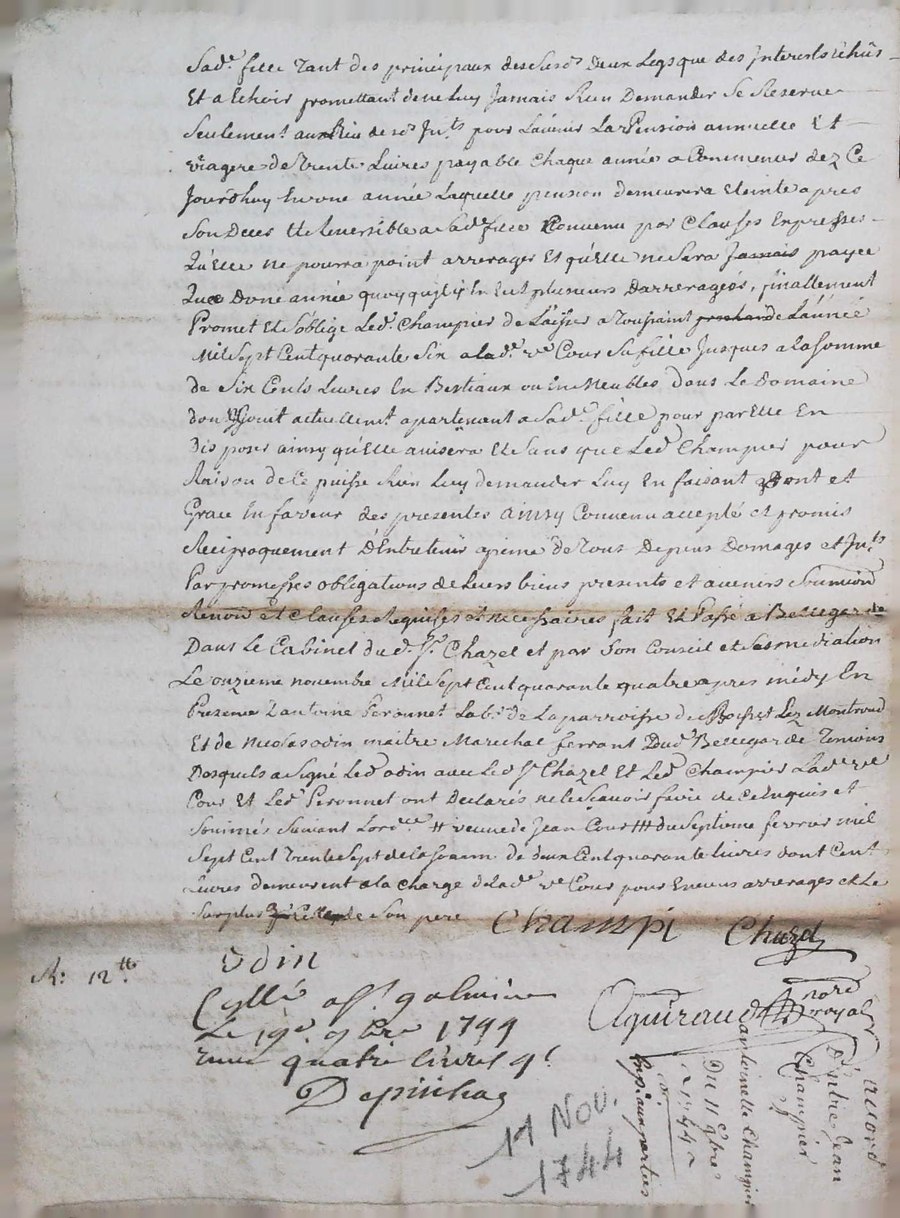 Sad.e fille Tant des principaux desd. Susd.s Deux Legs que des Interests échûs
Et a Echoir promettant de ne Luy Jamais Rien Demander Se Reserve
Seulement au lieu de sd. Jn.ts pour Lavenir La Pension annuelle Et
viagere de Trente Livres payable Chaque année a Commencer dez Ce
Jourdhuy En une année Laquelle pension demeurera Eteinte apres
Son Deces Et Reversible a Sad.e fille Convenu par Clauses Expresses
Qu'Elle ne pourra point arrerager Et qu'Elle ne Sera Jamais payée
Que Dune année quoyquil y En Eut plusieurs Darreragées, finallement
Promet Et S'oblige Led.t Champier de Laisser a Toussaint prochain de L'année
Mil Sept Cent quarante Six a lad.e v.e Cour Sa fille Jusques a la Somme
de Six Cents Livres En Bestiaux ou En Meubles dans Le Domaine
dont Jl Jouit actuellem.t apartenant a Sad.e fille pour par Elle En
Disposer ainsy qu'Elle avisera Et Sans que Led.t Champier pour
Raison de Ce puisse Rien Luy demander Luy En faisant Dont et
Grace En faveur des presentes ainsy Convenu accepté et promis
Reciproquement D'Entretenir a peine de Tous Depens Domages et Jn.ts
Par promesses obligations de Leurs biens presents et avenirs Soumion
Renon.on et Clauses Requises et necessaires fait Et Passé a Bellegarde
Dans Le Cabinet dud.t S.r Chazel et par Son Conseil et Sa mediation
Le onzieme novembre Mil Sept Cent quarante quatre apres midy En
Presence D'antoine Peronnet Lab.r de La parroisse de Lez Montrond
Et de Nicolas odin maitre Marechal ferrant Dud.t Bellegarde Temoins
Desquels a Signé Led.t odin avec Led.t S.r Chazel Et Led.t Champier Lad.e v.e
Cour Et Led.t Peronnet ont Declarés ne le Sçavoir faire de Ce Enquis et
Sommés Suivant Lord.ce # veuve de Jean Cour ## du Septieme fevrier mil
Sept Cent Trente Sept de la Somme de deux Cent quarante livres dont Cent
Livres demeurent a la charge de Lad.e v.e Cour pour Envers arrerages et Le
Surplus de Son pere Champi Chazel
R: 12tt
odin
Cllé a S.t galmier
Le 19.e 9bre 1744
Reçu quatre livres 4s
Depinhac
Aguiraud
nord
royal
accord
Entre Jean
Champier
antoinette Champier
Du 11 9bre
1744
Exp. aux parties
11 Nov.
1744